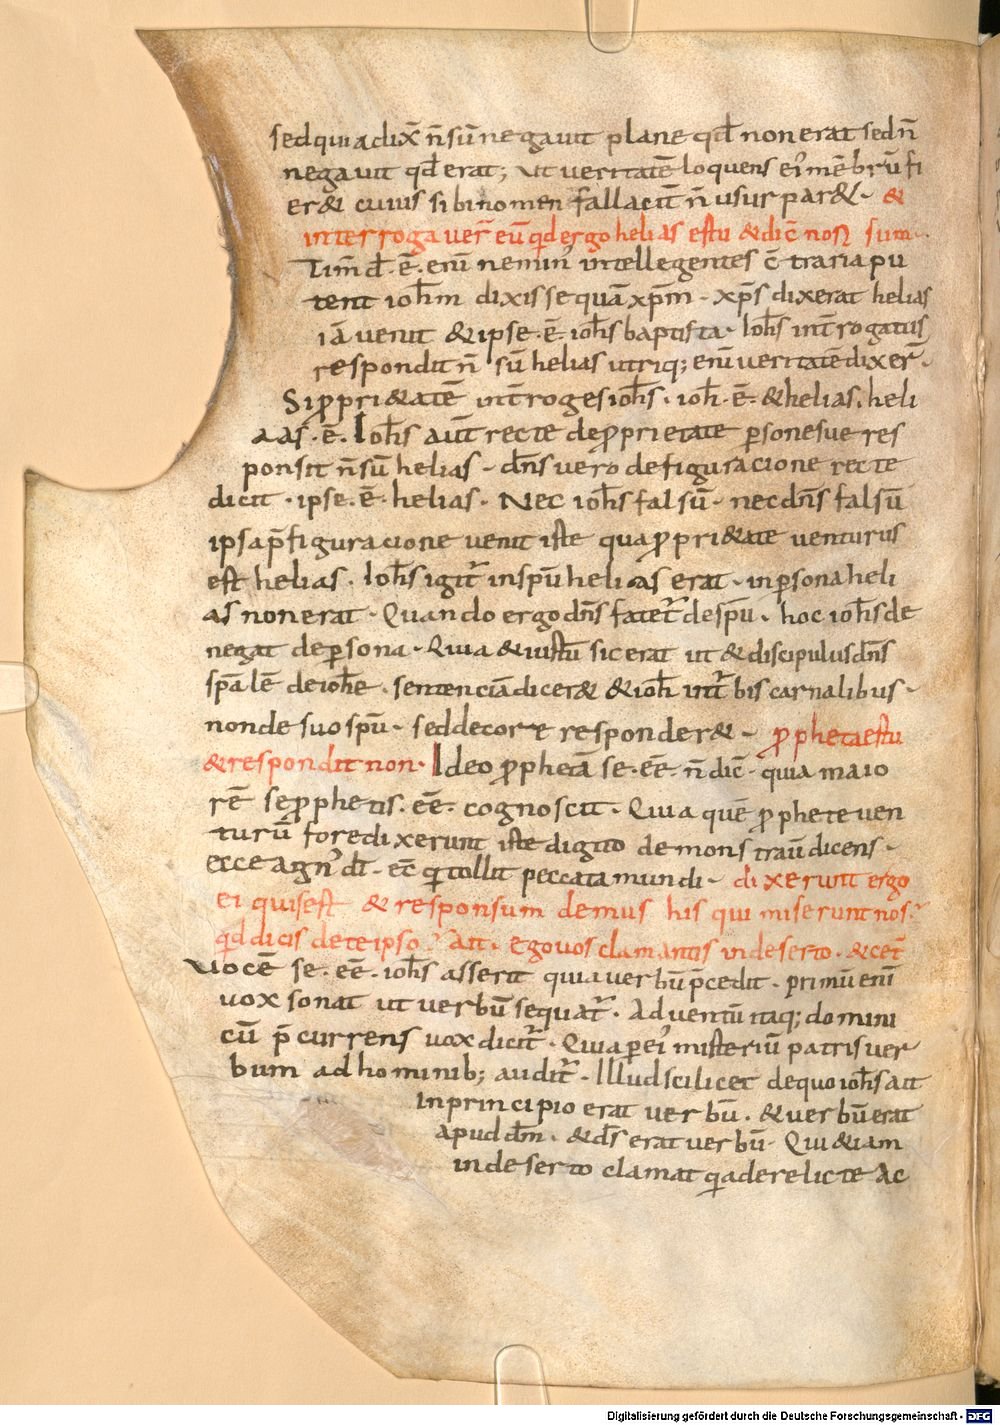 sed quia dix̄ n̄ sū negauit plane qđ non erat sed n̄
negauit qđ erat; ut veritatē loquens ei᾽ mēbrū fi
er& cuius sibi nomen fallacit̄ n̄ usurpar& · &
interrogauer̄ eū qd ergo helias es tu & dic̄ non sum ·
Tim̄ đ · ē · enī nemin᾽ intellegentes c̄traria pu
tent ioħm dixisse quā xp̄m · xp̄s dixerat helias
iā uenit & ipse · ē · ioħs baptista · Ioħs int̄rogatus
respondit n̄ sū helias utriq; enī veritatē dixer̄ ·
Si ꝓpri&atē int̄roges ioħs · ioħ · ē · & helias · heli
aas · ē · Ioħs aūt recte de ꝓprietate ꝑsone sue res
ponsit n̄ sū helias · dn̄s uero de figuracione recte
dicit · ipse · ē · helias · Nec ioħs falsū · nec dn̄s falsū
ipsa p̄figuracione uenit iste qua ꝓpri&ate uenturus
est helias · Ioħs igit᷒ in sp̄u helias erat · in ꝑsona heli
as non erat · Quando ergo dn̄s fatet᷒ de sp̄u · hoc ioħs de
negat de ꝑsona · Quia & iustū sic erat ut & discipulus dn̄s
sp̄alē de ioħe · sentenciā dicer& & ioħ int᷒ bis carnalibus ·
non de suo sp̄u · sed de corꝑe responder& · ꝓpheta es tu
& respondit non · Ideo ꝓphetā se · eē n̄ dic̄ · quia maio
rē se ꝓphetis · eē · cognoscit · Quia quē ꝓphete uen
turū fore dixerunt iste digito demonstrau᷒ dicens ·
ecce agn᾽ dī · ec̄ qi tollit peccata mundi · dixerunt ergo
ei quis es t̄ & responsum demus his qui miserunt nos ·
qd dicis de te ipso · ait · ego uox clamantis in deserto · & cet̄
uocē se · eē · ioħs asserit quia uerbū p̄cedit · primū enī
uox sonat ut uerbū sequat᷒ · Aduentū itaq; domini
cū p̄currens uox dicit᷒ · Quia ꝑ ei᾽ misteriū patris uer
bum ad hominib; audit᷒ · Illud scilicet de quo ioħs ait
In principio erat uerbū · & uerbū erat
apud dm̄ · & ds̄ erat uerbū · Qui &iam
in deserto clamat qia derelicte ac
Digitalisierung gefördert durch die Deutsche Forschungsgemeinschaft - DFG